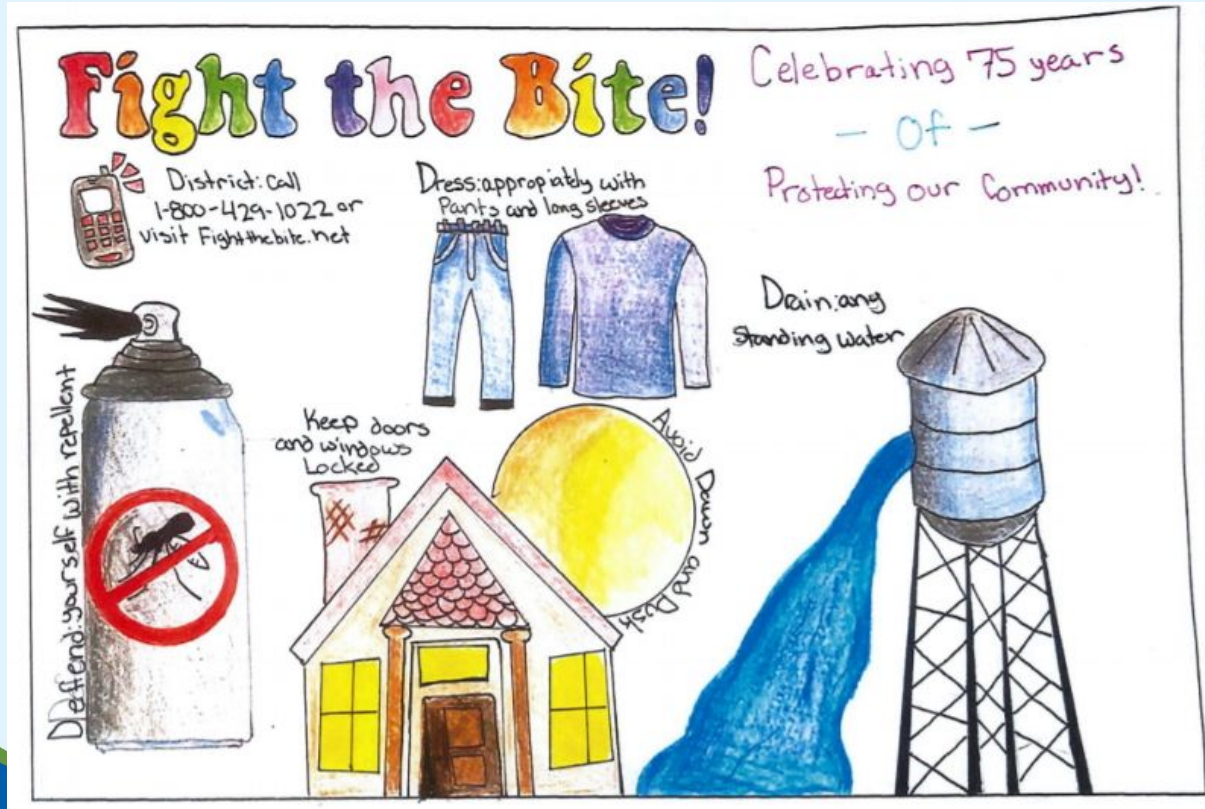 Fight the Bite!
Celebrating 75 years
- Of -
Protecting our Community!
District: Call
1-800-429-1022 or
visit Fightthebite.net
Dress: appropiately with
Pants and long sleeves
Drain: any
Standing Water
Deffend: yourself with repellent
Keep doors
and windows
Locked
Avoid Dawn and Dusk